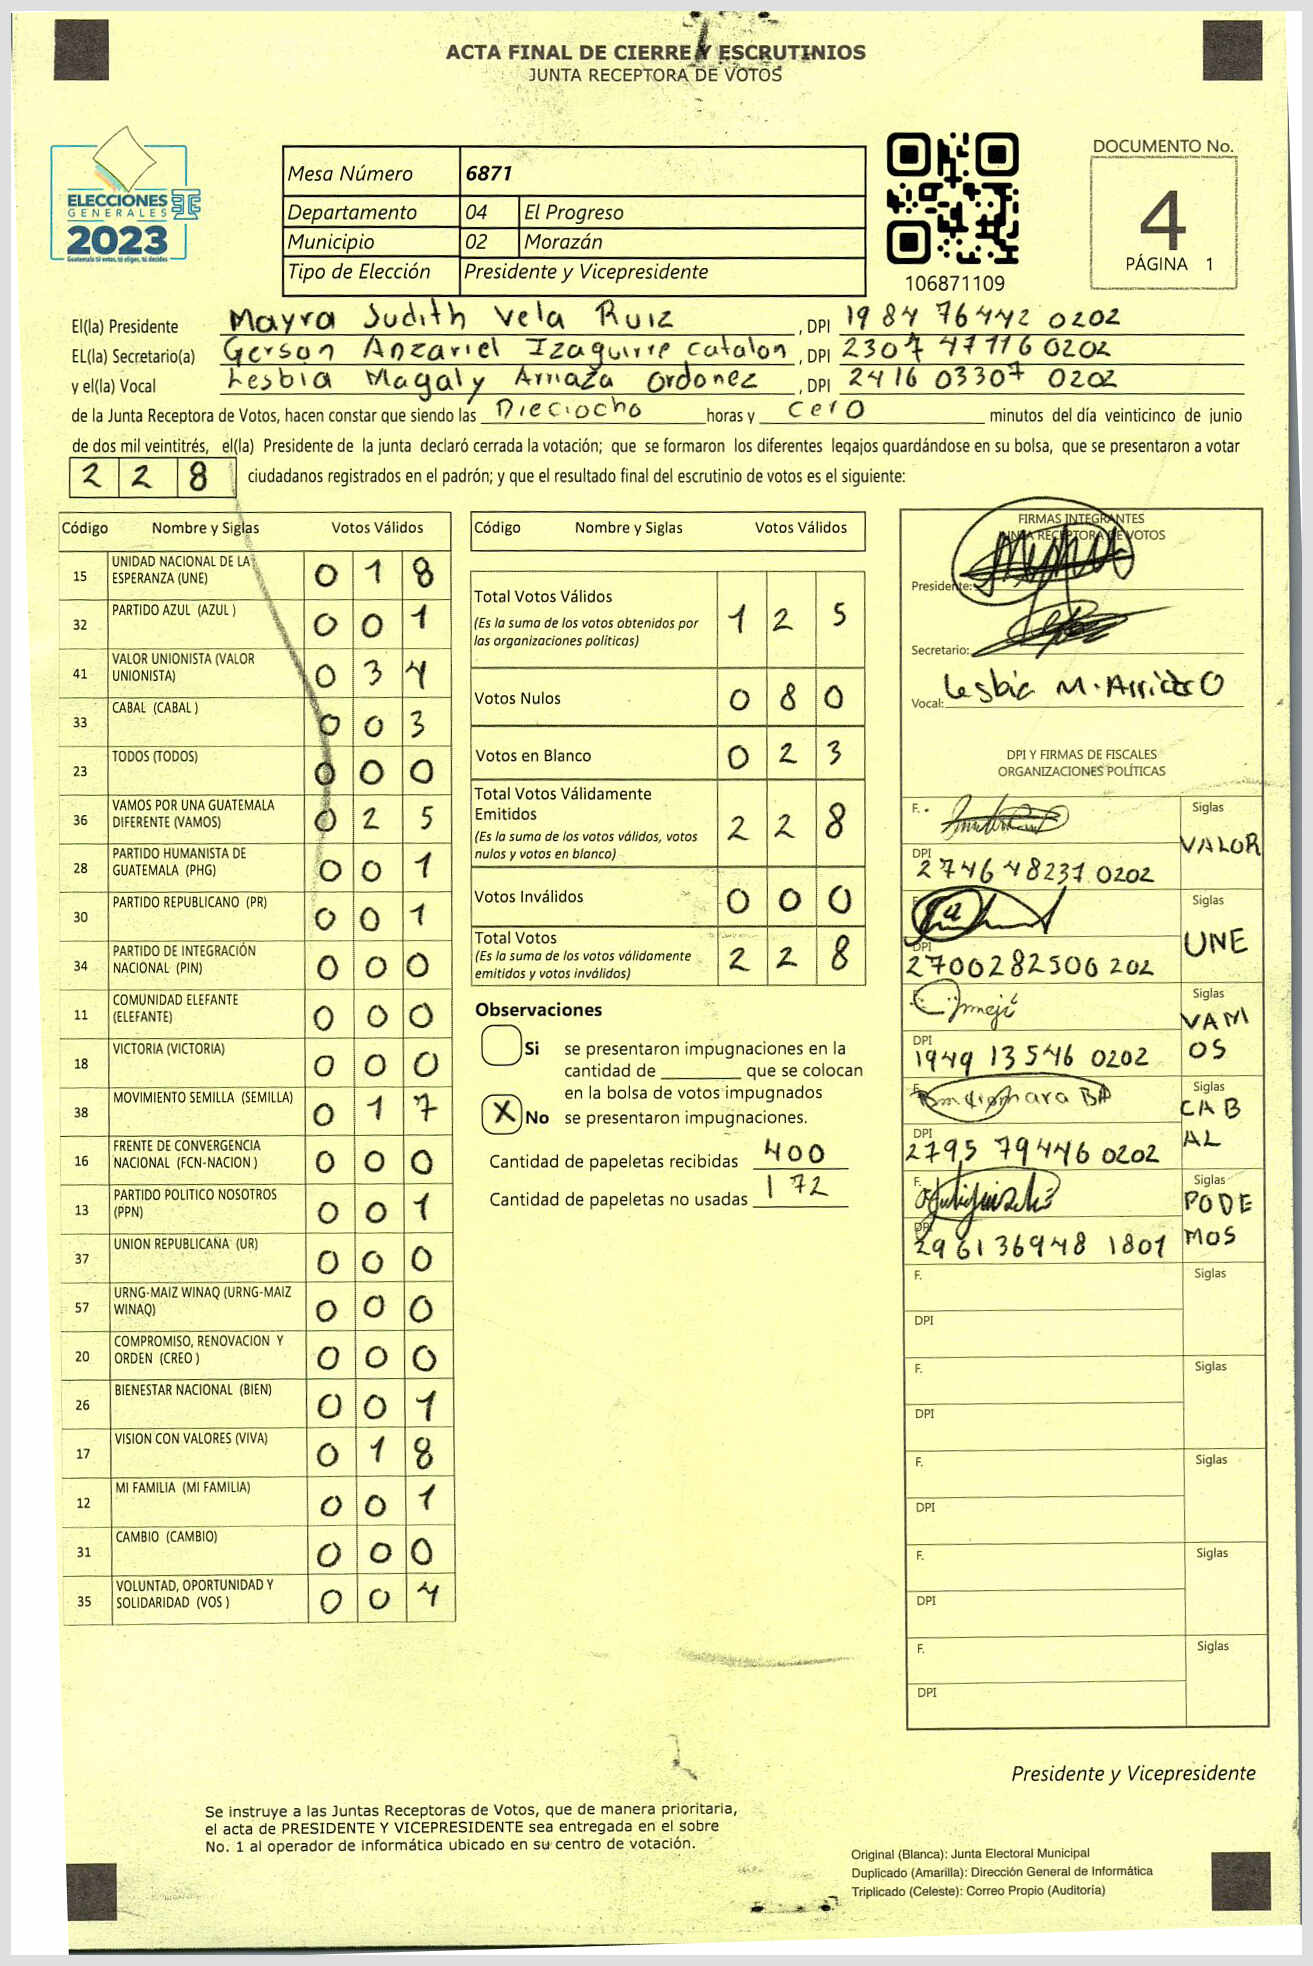 ACTA FINAL DE CIERRE Y ESCRUTINIOS
JUNTA RECEPTORA DE VOTOS
ELECCIONES
GENERALES
2023
Guatemala tú votas, tú eliges, tú decides
Mesa Número 6871
Departamento 04 El Progreso
Municipio 02 Morazán
Tipo de Elección Presidente y Vicepresidente
106871109
DOCUMENTO No.
4
PÁGINA 1
El(la) Presidente Mayra Judith Vela Ruiz , DPI 1984 76442 0202
EL(la) Secretario(a) Gerson Anzariel Izaguirre Catalon , DPI 2307 47116 0202
y el(la) Vocal Lesbia Magaly Arriaza Ordonez , DPI 2416 03307 0202
de la Junta Receptora de Votos, hacen constar que siendo las Dieciocho horas y cero minutos del día veinticinco de junio
de dos mil veintitrés, el(la) Presidente de la junta declaró cerrada la votación; que se formaron los diferentes legajos guardándose en su bolsa, que se presentaron a votar
2 2 8 ciudadanos registrados en el padrón; y que el resultado final del escrutinio de votos es el siguiente:
Código Nombre y Siglas Votos Válidos
15 UNIDAD NACIONAL DE LA ESPERANZA (UNE) 0 1 8
32 PARTIDO AZUL (AZUL ) 0 0 1
41 VALOR UNIONISTA (VALOR UNIONISTA) 0 3 4
33 CABAL (CABAL ) 0 0 3
23 TODOS (TODOS) 0 0 0
36 VAMOS POR UNA GUATEMALA DIFERENTE (VAMOS) 0 2 5
28 PARTIDO HUMANISTA DE GUATEMALA (PHG) 0 0 1
30 PARTIDO REPUBLICANO (PR) 0 0 1
34 PARTIDO DE INTEGRACIÓN NACIONAL (PIN) 0 0 0
11 COMUNIDAD ELEFANTE (ELEFANTE) 0 0 0
18 VICTORIA (VICTORIA) 0 0 0
38 MOVIMIENTO SEMILLA (SEMILLA) 0 1 7
16 FRENTE DE CONVERGENCIA NACIONAL (FCN-NACION ) 0 0 0
13 PARTIDO POLITICO NOSOTROS (PPN) 0 0 1
37 UNION REPUBLICANA (UR) 0 0 0
57 URNG-MAIZ WINAQ (URNG-MAIZ WINAQ) 0 0 0
20 COMPROMISO, RENOVACION Y ORDEN (CREO ) 0 0 0
26 BIENESTAR NACIONAL (BIEN) 0 0 1
17 VISION CON VALORES (VIVA) 0 1 8
12 MI FAMILIA (MI FAMILIA) 0 0 1
31 CAMBIO (CAMBIO) 0 0 0
35 VOLUNTAD, OPORTUNIDAD Y SOLIDARIDAD (VOS ) 0 0 4
Código Nombre y Siglas Votos Válidos
Total Votos Válidos 1 2 5
(Es la suma de los votos obtenidos por
las organizaciones politicas)
Votos Nulos 0 8 0
Votos en Blanco 0 2 3
Total Votos Válidamente
Emitidos 2 2 8
(Es la suma de los votos válidos, votos
nulos y votos en blanco)
Votos Inválidos 0 0 0
Total Votos 2 2 8
(Es la suma de los votos válidamente
emitidos y votos inválidos)
Observaciones
Si se presentaron impugnaciones en la
cantidad de ________ que se colocan
en la bolsa de votos impugnados
X No se presentaron impugnaciones.
Cantidad de papeletas recibidas 400
Cantidad de papeletas no usadas 172
FIRMAS INTEGRANTES
JUNTA RECEPTORA DE VOTOS
Presidente:
Secretario:
Vocal: Lesbia M. Arriaza O
DPI Y FIRMAS DE FISCALES
ORGANIZACIONES POLÍTICAS
F. Siglas VALOR
DPI 2746 48231 0202
F. Siglas UNE
DPI 2700282500 202
F. Siglas VAMOS
DPI 1949 13546 0202
F. Siglas CABAL
DPI 2795 79446 0202
F. Siglas PODEMOS
DPI 296136948 1801
F. Siglas
DPI
F. Siglas
DPI
F. Siglas
DPI
F. Siglas
DPI
F. Siglas
DPI
Presidente y Vicepresidente
Se instruye a las Juntas Receptoras de Votos, que de manera prioritaria,
el acta de PRESIDENTE Y VICEPRESIDENTE sea entregada en el sobre
No. 1 al operador de informática ubicado en su centro de votación.
Original (Blanca): Junta Electoral Municipal
Duplicado (Amarilla): Dirección General de Informática
Triplicado (Celeste): Correo Propio (Auditoría)